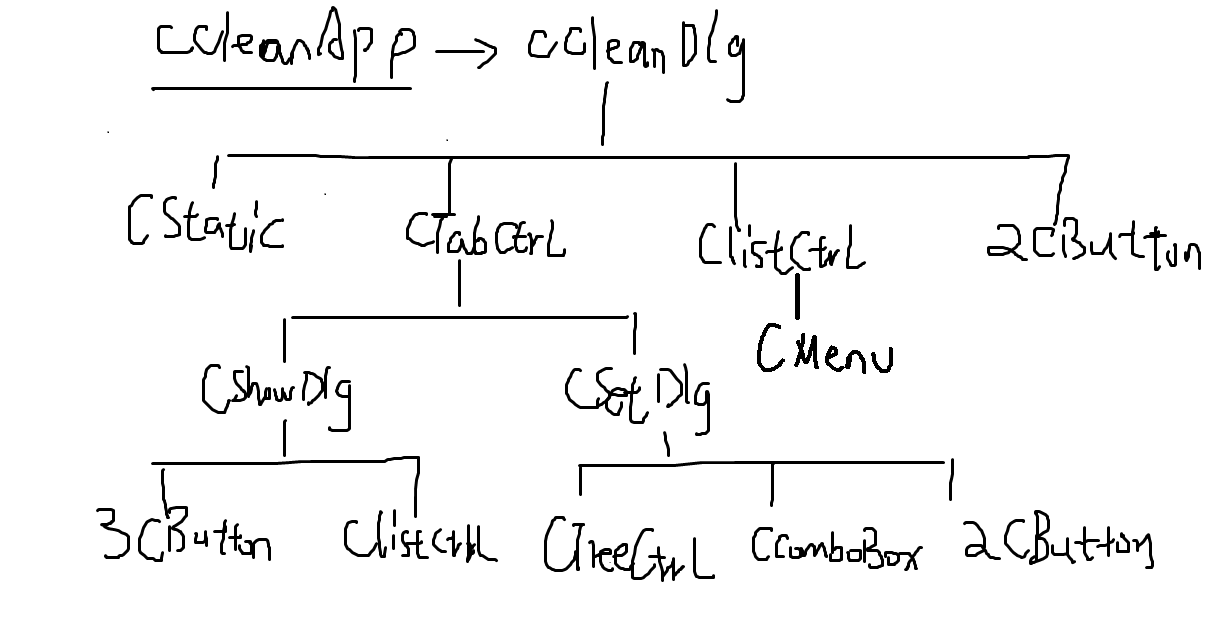 CCleanApp → CCleanDlg
CStatic CTabCtrL CListCtrL 2CButton
CMenu
CShowDlg CSetDlg
3CButton CListCtrL CTreeCtrL CComboBox 2CButton